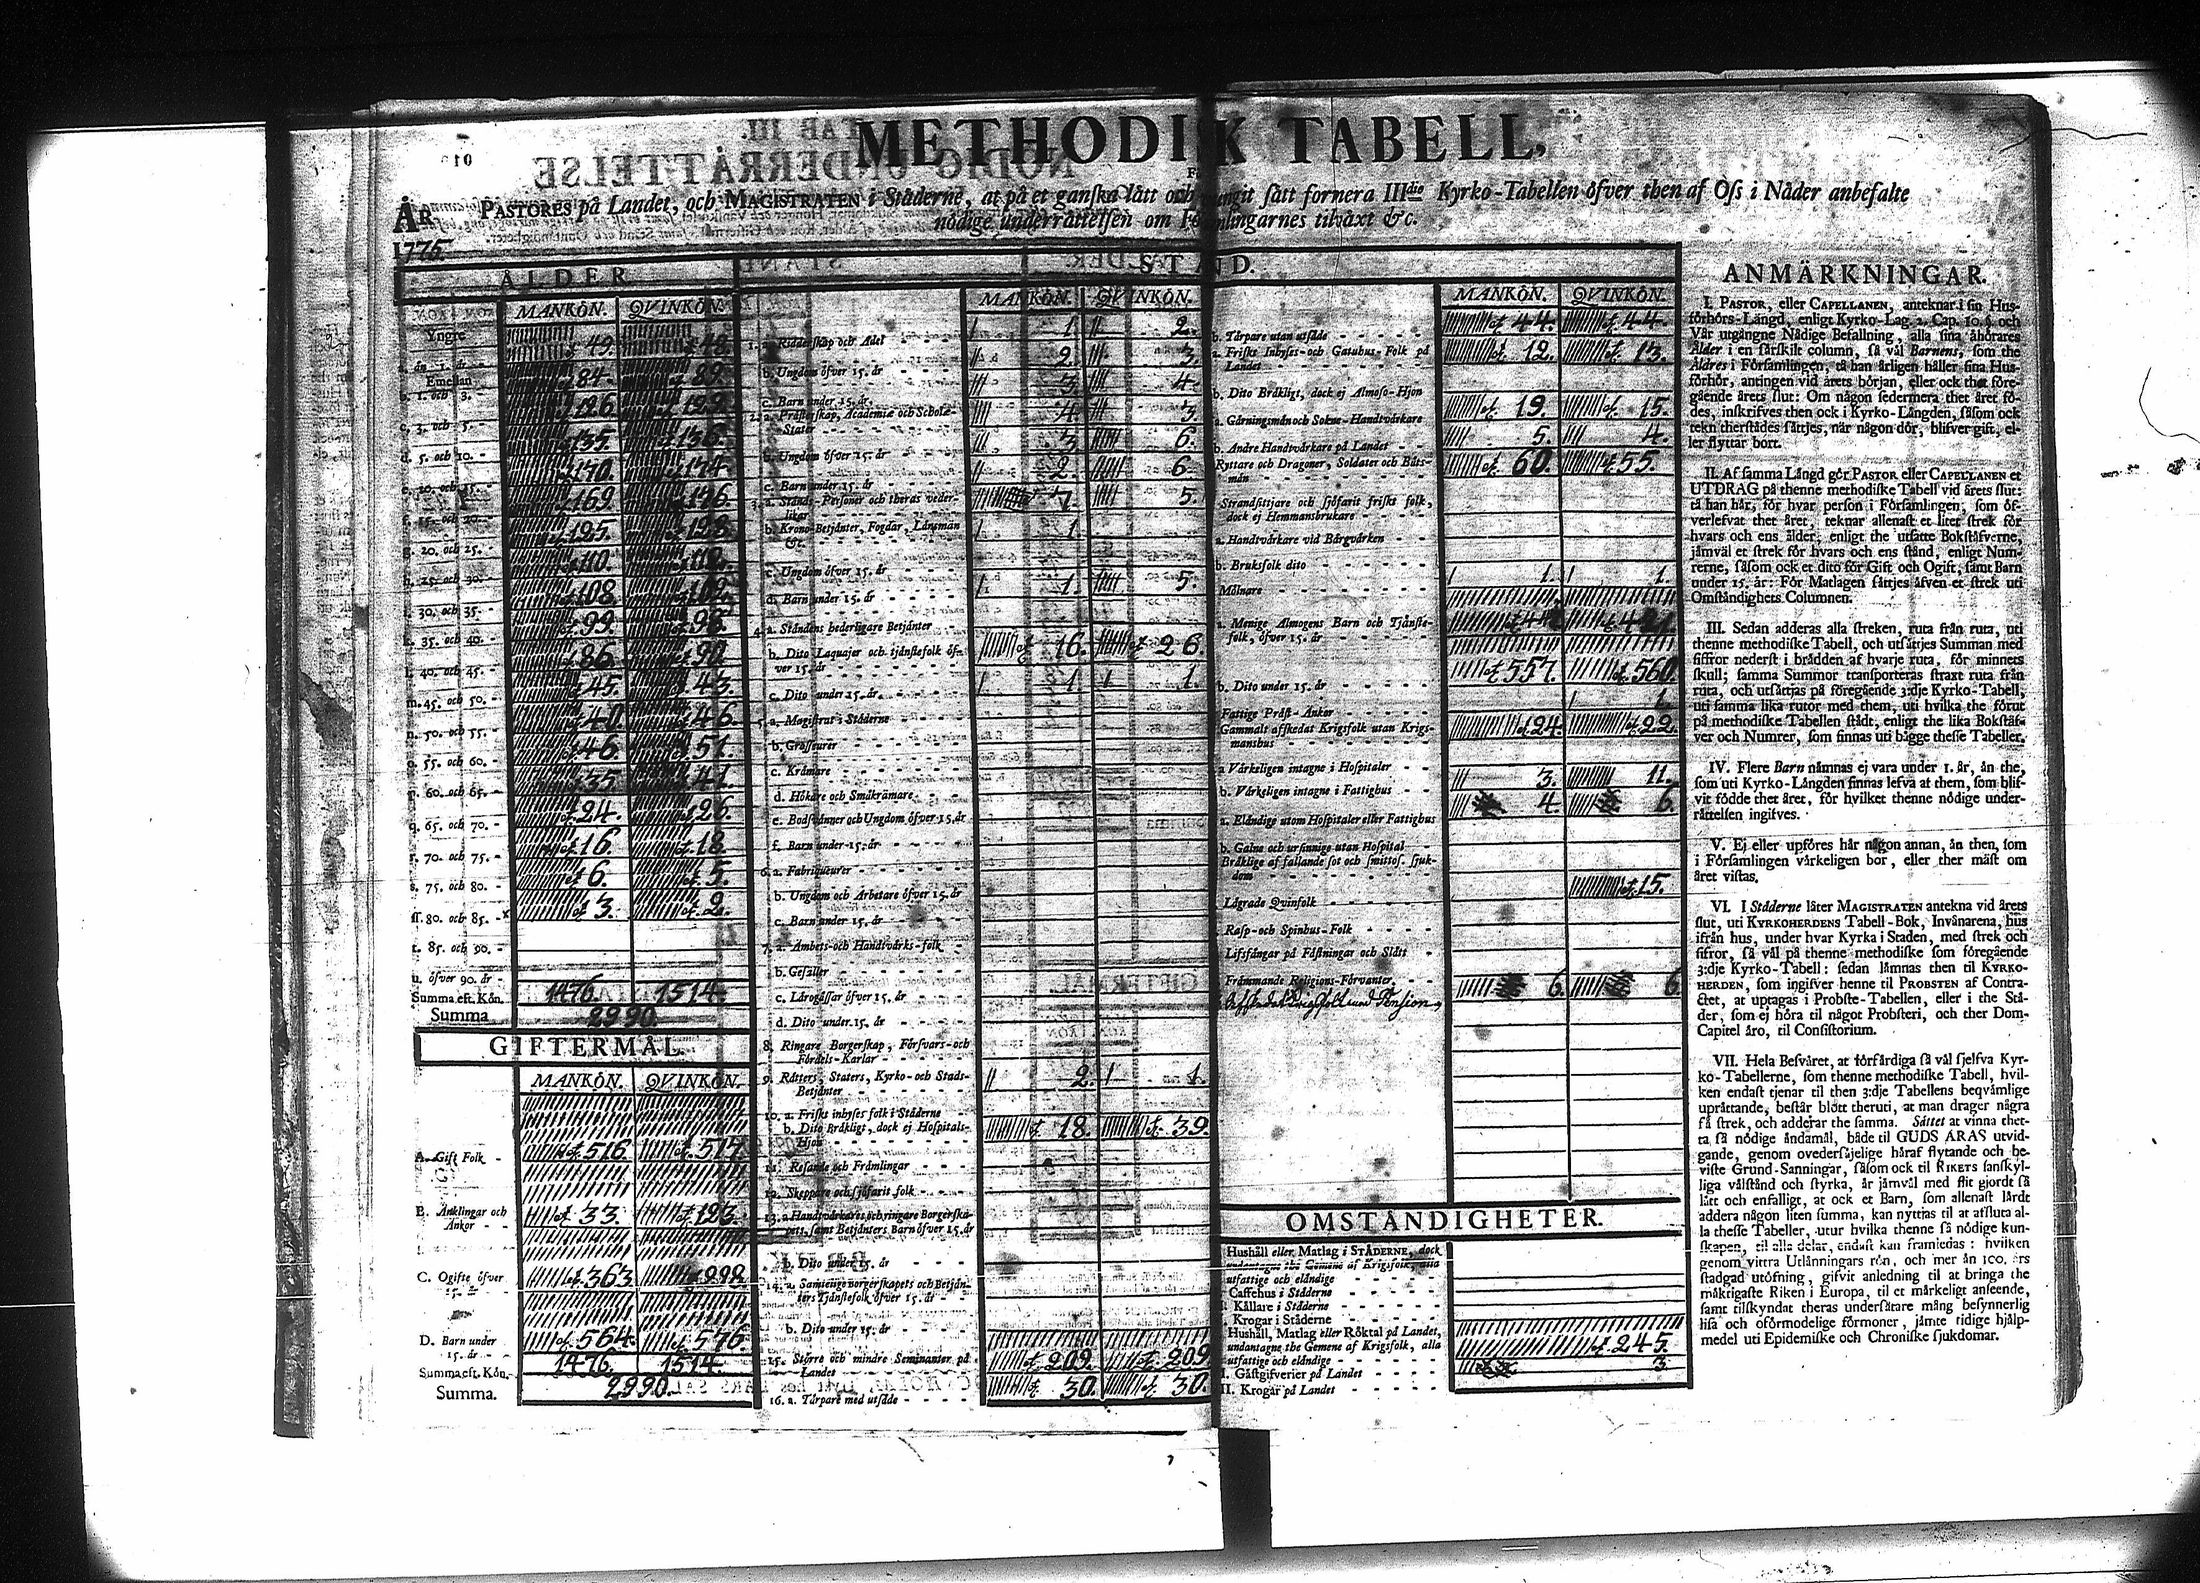 METHODIK TABELL,
ÅR PASTORES på Landet, och MAGISTRATEN i Ståderne, at på et ganska lått och sått fornera IIIdie Kyrko-Tabellen öfver then af Oss i Nåder anbefalte
1775. nödige underråttelsen om Församlingarnes tilväxt &c.
ÅLDER
MANKÖN. QVINKÖN.
Yngre än 1. år 49. 48.
Emellan
b. 1. och 3. 84. 89.
c. 3. och 5. 126. 129.
d. 5. och 10. 135. 136.
e. 10. och 15.
15. och 20. 169.
g. 20. och 25. 128.
h. 25. och 30. 110.
i. 30. och 35. 108.
k. 35. och 40. 99.
l. 40. och 45. 86. 90.
m. 45. och 50. 45. 43.
n. 50. och 55. 40. 46.
o. 55. och 60. 46. 51.
p. 60. och 65. 35. 41.
q. 65. och 70. 24. 26.
r. 70. och 75. 16. 18.
s. 75. och 80. 6. 5.
ff. 80. och 85. 3. 2.
t. 85. och 90.
u. öfver 90. år
Summa eft. Kön. 1476. 1514.
Summa 2990.
GIFTERMÅL.
MANKÖN. QVINKÖN.
A. Gift Folk 516. 517.
B. Änklingar och Änkor 33. 123.
C. Ogifte öfver 15. år 363. 298.
D. Barn under 15. år 564. 576.
Summa eft. Kön. 1476. 1514.
Summa. 2990.
STÅND.
MANKÖN. QVINKÖN.
1. a. Ridderskap och Adel 1. 2.
b. Ungdom öfver 15. år 2. 3.
c. Barn under 15. år. 3. 4.
2. a. Pråsterskap, Academiæ och Scholæ-Stater 4. 3.
b. Ungdom öfver 15. år 3. 6.
c. Barn under 15. år 2. 6.
3. a. Stånds-Personer och theras vederlikar 7. 5.
b. Krono-Betjänter, Fogdar, Länsmän &c. 1.
c. Ungdom öfver 15. år
d. Barn under 15. år 1. 5.
4. a. Ståndens hederligare Betjänter
b. Dito Laquajer och tjänstefolk öfver 15. år 16. 26.
c. Dito under 15. år. 1. 1.
5. a. Magistrat i Ståderne
b. Grosseurer
c. Krämare
d. Hökare och Småkrämare
e. Bodsvånner och Ungdom öfver 15. år
f. Barn under 15. år
6. a. Fabriqueurer
b. Ungdom och Arbetare öfver 15. år
c. Barn under 15. år
7. a. Ambets-och Handtvårks-folk
b. Gesåller
c. Lärogåssar öfver 15. år
d. Dito under 15. år
8. Ringare Borgerskap, Försvars-och Fördels-Karlar
9. Råtters, Staters, Kyrko-och Stads-Betjänter 2. 1.
10. a. Friskt inhyses folk i Ståderne
b. Dito Bråkligt, dock ej Hospitals-Hjon 18. 39.
11. Resande och Främlingar
12. Skeppare och sjöfarit folk
13. a. Handtvårkares och ringare Borgerskapets, samt Betjänters Barn öfver 15. år
b. Dito under 15. år
14. a. Samtelige Borgerskapets och Betjänters Tjänstefolk öfver 15. år
b. Dito under 15. år
15. Större och mindre Seminanter på Landet 209. 209.
16. a. Tårpare med utsåde 30. 30.
MANKÖN. QVINKÖN.
b. Tårpare utan utsåde 44. 44.
a. Friskt Inhyses-och Gatuhus-Folk på Landet 12. 13.
b. Dito Bråkligt, dock ej Almoso-Hjon
a. Gärningsmän och Sokne-Handtvårkare 19. 15.
b. Andre Handtvårkare på Landet 5. 4.
Ryttare och Dragoner, Soldater och Båtsmän 60. 55.
Strandsittjare och sjöfarit friskt folk, dock ej Hemmansbrukare
a. Handtvårkare vid Bårgvårken
b. Bruksfolk dito
Mölnare 1. 1.
a. Menige Almogens Barn och Tjänstefolk, öfver 15. år
b. Dito under 15. år 557. 560.
Fattige Pråst-Änkor 1.
Gammalt afskedat Krigsfolk utan Krigsmanshus 24. 22.
a. Vårkeligen intagne i Hospitaler
b. Vårkeligen intagne i Fattighus 3. 11.
a. Eländige utom Hospitaler eller Fattighus 4. 6.
b. Galne och ursinnige utan Hospital
Bråklige af fallande sot och smittos. sjukdom
Lägrade Qvinfolk 15.
Rasp-och Spinhus-Folk
Lifsfångar på Fåstningar och Slått
Främmande Religions-Förvanter
Afskedat Krigsfolk med Pension, 6. 6.
OMSTÄNDIGHETER.
Hushåll eller Matlag i STÅDERNE, dock
undantagne the Gemene af Krigsfolk, alla
utfattige och eländige
Caffehus i Ståderne
Kållare i Ståderne
Krogar i Ståderne
Hushåll, Matlag eller Röktal på Landet,
undantagne the Gemene af Krigsfolk, alla
utfattige och eländige 245.
I. Gåstgifverier på Landet 3.
II. Krogar på Landet
ANMÄRKNINGAR.
I. PASTOR, eller CAPELLANEN, anteknar i sin Hus-
förhörs-Längd, enligt Kyrko-Lag. 2. Cap. 10. §. och
Vår utgångne Nådige Befallning, alla sina åhörares
Ålder i en särskilt column, så väl Barnens, som the
Äldres i Församlingen, tå han årligen håller sina Hus-
förhör, antingen vid årets början, eller ock thet före-
gående årets slut: Om någon sedermera thet året fö-
des, inskrifves then ock i Kyrko-Längden, såsom ock
tekn therstädes såttjes, når någon dör, blifver gift, el-
ler flyttar bort.
II. Af samma Längd gör PASTOR eller CAPELLANEN et
UTDRAG på thenne methodiske Tabell vid årets slut:
tå han hår, för hvar person i Församlingen, som öf-
verlefvat thet året, teknar allenast et litet strek för
hvars och ens ålder, enligt the utsatte Bokståfverne,
jämväl et strek för hvars och ens stånd, enligt Num-
rerne, såsom ock et dito för Gift och Ogift, samt Barn
under 15. år: För Matlagen såttjes åfven et strek uti
Omståndighets Columnen.
III. Sedan adderas alla streken, ruta från ruta, uti
thenne methodiske Tabell, och utsåttjes Summan med
siffror nederst i brädden af hvarje ruta, för minnets
skull; samma Summor transporteras straxt ruta från
ruta, och utsåttjas på föregående 3:dje Kyrko-Tabell,
uti samma lika rutor med them, uti hvilka the förut
på methodiske Tabellen stådt, enligt the lika Bokståf-
ver och Numrer, som finnas uti bägge thesse Tabeller.
IV. Flere Barn nämnas ej vara under 1. år, än the,
som uti Kyrko-Längden finnas lefva af them, som blif-
vit födde thet året, för hvilket thenne nödige under-
råttelsen ingifves.
V. Ej eller upföres hår någon annan, än then, som
i Församlingen vårkeligen bor, eller ther måst om
året vistas.
VI. I Ståderne låter MAGISTRATEN antekna vid årets
slut, uti KYRKOHERDENS Tabell-Bok, Invånarena, hus
ifrån hus, under hvar Kyrka i Staden, med strek och
siffror, så väl på thenne methodiske som föregående
3:dje Kyrko-Tabell: sedan låmnas then til KYRKO-
HERDEN, som ingifver henne til PROBSTEN af Contra-
ctet, at uptagas i Probste-Tabellen, eller i the Stå-
der, som ej höra til något Probsteri, och ther Dom-
Capitel åro, til Consistorium.
VII. Hela Besväret, at förfärdiga så väl sjelfva Kyr-
ko-Tabellerne, som thenne methodiske Tabell, hvil-
ken endast tjenar til then 3:dje Tabellens beqvåmlige
upråttande, består blått theruti, at man drager några
få strek, och adderar the samma. Såttet at vinna thet-
ta så nödige åndamål, både til GUDS ÄRAS utvid-
gande, genom ovedersäjelige häraf flytande och be-
viste Grund-Sanningar, såsom ock til RIKETS sanskyl-
liga välstånd och styrka, är jämväl med flit gjordt så
lått och enfalligt, at ock et Barn, som allenast lårdt
addera någon liten summa, kan nyttjas til at afsluta al-
la thesse Tabeller, utur hvilka thenne så nödige kun-
skapen, til alla delar, endast kan framledas: hvilken
genom vittra Utlånningars rön, och mer än 100. års
stadgad utöfning, gifvit anledning til at bringa the
måktigaste Riken i Europa, til et mårkeligt anseende,
samt tilskyndat theras undersåtare mång besynnerlig
lisa och oförmodelige förmoner, jämte tidige hjålp-
medel uti Epidemiske och Chroniske sjukdomar.